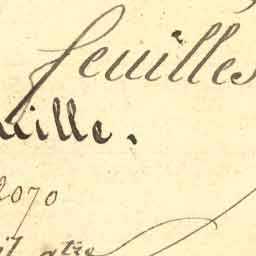 feuilles
uille.
2070